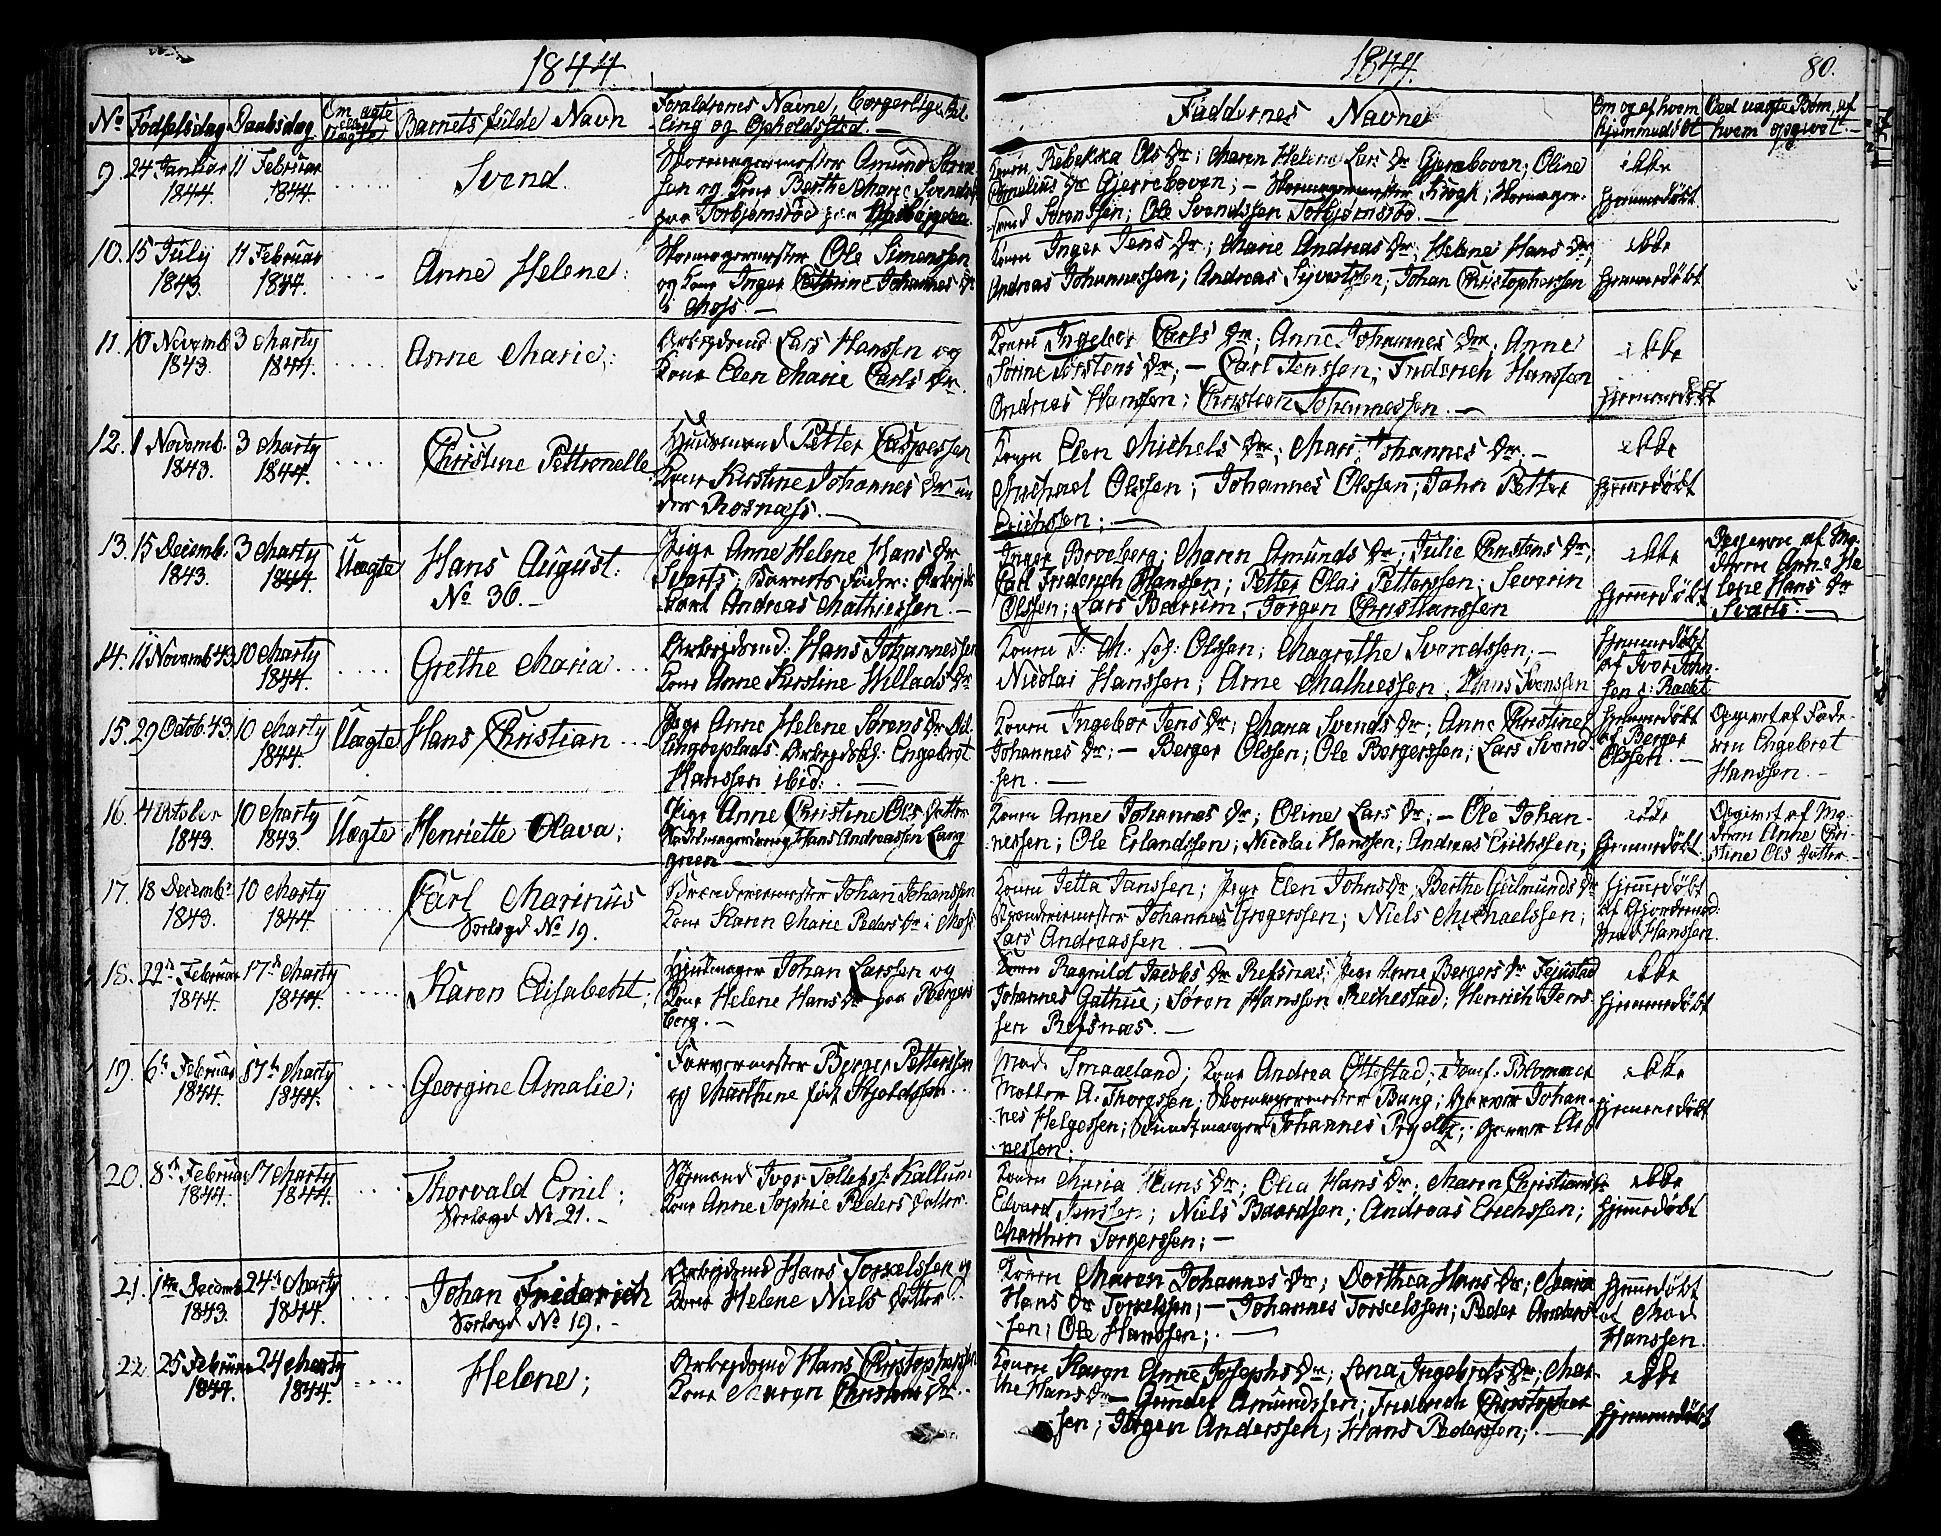 1844
1844.
80.
No Fødselsdag Daabsdag Om ægte eller Uægte Barnets fulde Navn Forældrenes Navne, borgerlige Stilling og Opholdssted. —
Faddernes Navne
Om og af hvem hjemmedøbt
Ved uægte Børn, af hvem opgivet. —
9. 24 Januar 1844. 11 Februar 1844. Svend.
Skomagermester Amund Sørensen og Kone Berthe Marie Svends Dr
paa Torbjørnsrød paa
Konen Rebekka Ols Dr; Maren Helene Lars Dr Gjerreboven; Oline
Cornelius Dr Gjerreboven; — Skomagermester Krogh; Skomager-
svend Sørenssen; Ole Svendssen Torbjørnsrød. —
ikke hjemmedøbt
10. 15 July 1843. 11 Februar 1844. Anne Helene:
Skomagermester Ole Simenssen
og Kone Inger Cathrine Johannes Dr
i Moss. —
Konen Inger Jens Dr; Marie Andreas Dr; Helene Hans Dr;
Andreas Johannessen; Andreas Syvertssen; Johan Christopherssen
ikke hjemmedøbt
11. 10 Novemb. 1843. 3 Marty 1844. Anne Marie;
Arbejdsmd. Lars Hanssen og
Kone Elen Marie Carls Dr.
Konen Ingebor Carls Dr; Anne Johannes Dr; Anne
Sørine Torstens Dr; — Carl Jenssen; Friderich Hanssen
Andreas Hanssen; Christian Johannessen. —
ikke hjemmedøbt
12. 1 Novemb. 1843. 3 Marty 1844. Christine Pettronelle
Huusmand Petter Caspessen
Kone Kirstine Johannes Dr un
der Rosnæss. —
Konen Elen Michels Dr; Mari Johannes Dr; —
Michael Olssen; Johannes Olssen; John Petter
Erichssen; —
ikke hjemmedøbt
13. 15 Decemb. 1843. 3 Marty 1844. Uægte Hans August:
No 36. —
Pige Anne Helene Hans Dr
Svarts; Barnets Fader: Arbejds
karl Andreas Mathiessen. —
Inger Broeberg; Maren Amunds Dr; Julie Christens Dr;
Carl Friderich Hanssen; Petter Olai Petterssen; Severin
Olssen; Lars Bærum; Jørgen Christianssen
ikke hjemmedøbt
Opgiven af Mo-
deren Anne He
lene Hans Dr
Svarts. —
14. 11 Novemb 43 10 Marty 1844. Grethe Maria
Arbejdsmd: Hans Johannessen
Kone Anne Kirstine Willads Dr
Konen Olssen; Magrethe Svendssen; —
Nicolai Hanssen; Arne Mathiessen; Hans Svenssen
hjemmedøbt
af Iver John-
sens: Raadet
15. 29 Octob. 43 10 Marty 1844. Uægte Hans Christian
Pige Anne Helene Sørens Dr
Engebret
Hanssen ibid. —
Konen Ingebor Jens Dr; Maria Svends Dr; Anne Christine
Johannes Dr; — Berger Olssen; Ole Borgerssen; Lars Svend-
sen. —
hjemmedøbt
af Berger
Olssen. —
Opgivet af Fade-
ren Engebret
Hanssen. —
16. 4 October 1843. 10 Marty 1843. Uægte Henriette Olava;
Pige Anne Christine Ols Datter
Hans Andreassen Lang
green —
Konen Anne Johannes Dr; Oline Lars Dr; — Ole Johan-
nessen; Ole Erlandssen; Nicolai Hanssen; Andreas Erichssen;
ikke hjemmedøbt
Opgivet af Mo-
deren Anne Chri-
stine Ols Datter. —
17. 18 Decembr 1843. 10 Marty 1844. Carl Marinius
Vorlagd No 19.
Brænderiemester Johan Johanssen
Kone Karen Marie Peders Dr i Moss
Konen Jetta Janssen; Pige Elen Johns Dr; Berthe Gulmunds Dr
Brænderiemester Johannes Grøgerssen; Niels Michaelssen;
Lars Andreassen. —
hjemmedøbt
af Gjordemod.
Mad Hanssen.
18. 22de Februar 1844. 17de Marty 1844. Karen Elisabeht;
Johan Larssen og
Kone Helene Hans Dr paa Bergers
berg. —
Konen Ragnild Jacobs Dr Refsnæs; Pige Anne Bergers Dr Fejestad
Johannes Gathue; Søren Hanssen Rechestad; Henrich Jens-
sen Refsnæs. —
ikke hjemmedøbt
19. 6te Februar 1844. 17de Marty 1844. Georgine Amalie;
Farvermester Berger Petterssen
og Marthine født Skjoldssen
Mad. Smaaeland; Kone Andrea Ottestad; Jomf. Blommer
Mottem A. Thorgssen. Skomagermester Bung; Garver Johan-
nes Helgessen; Buntmager Johannes; Garver
nessen;
ikke hjemmedøbt
20. 8de Februar 1844. 17 Marty 1844. Thorvald Emil;
Vorlagd No 21. —
Sømand Iver Tollefs: Kallum
Kone Anne Sophie Peders Datter
Konen Maria Hans Dr; Olia Hans Dr; Maren Christians Dr
Edvard Jenssen; Niels Baardsen; Andreas Erichssen;
Marthin Torgerssen; —
ikke hjemmedøbt
21. 1ste Decemb 1843. 24de Marty 1844. Johan Friderich
Vorlagd No 19. —
Arbejdsmd Hans Torkelssen og
Kone Helene Niels Datter
Konen Maren Johannes Dr; Dorthea Hans Dr; Maria
Hans Dr Torkelssen; — Johannes Torkelssen; Peder Anders-
sen; Ole Hanssen; —
hjemmedøbt
af Mad
Hanssen.
22 25 Februar 1844. 24 Marty 1844. Helene;
Arbejdsmd Hans Christophersen
Kone Maren Christens Dr. —
Konen Karen Anne Josephs Dr; Lena Ingebrets Dr; Mar-
the Hans Dr — Gunder Amundssen; Friderich Christopher-
sen; Jørgen Anderssen; Hans Pederssen; —
ikke hjemmedøbt